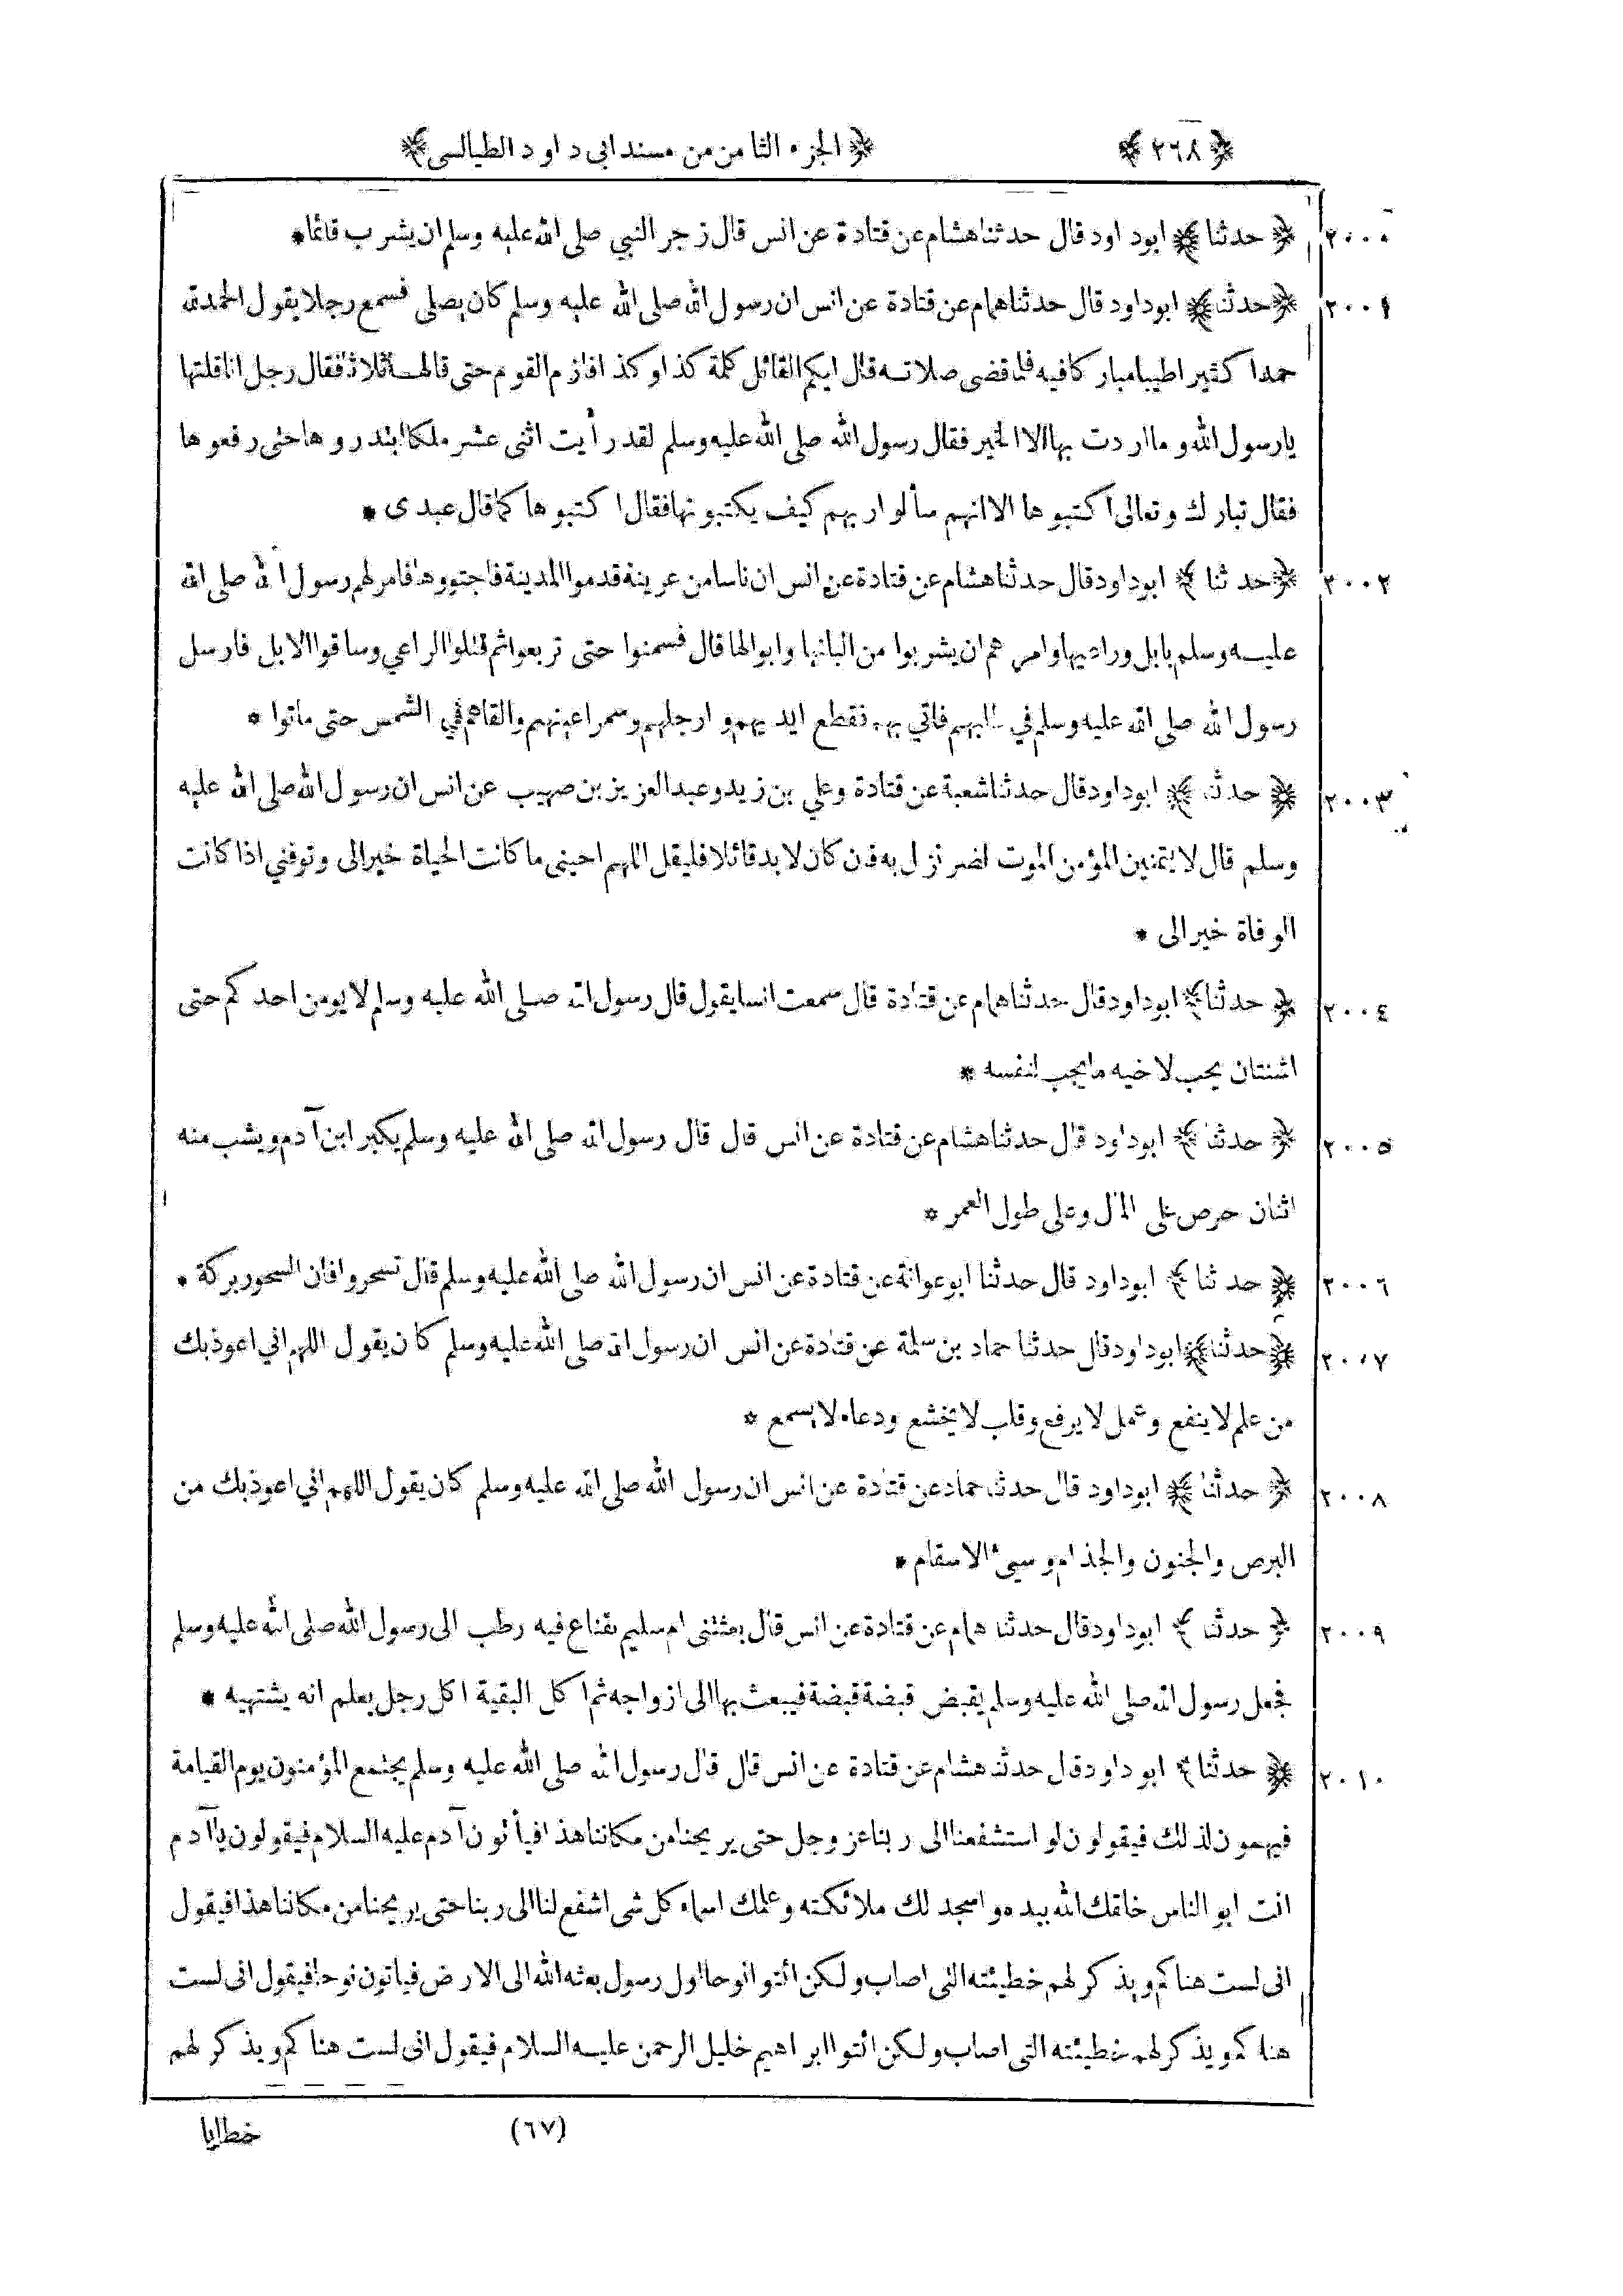 ﴿ ٢٦٨ ﴾ ﴿ الجزء الثامن من مسند ابى داود الطيالسى ﴾
٢٠٠٠ ﴿ حدثنا ﴾ ابوداود قال حدثنا هشام عن قتادة عن انس قال زجر النبي صلى الله عليه وسلم ان يشرب قائما *
٢٠٠١ ﴿ حدثنا ﴾ ابوداود قال حدثنا همام عن قتادة عن انس ان رسول الله صلى الله عليه وسلم كان يصلى فسمع رجلا يقول الحمد لله
حمدا كثيرا طيبا مباركا فيه فلما قضى صلاته قال ايكم القائل كلمة كذا وكذا فازم القوم حتى قالها ثلاثا فقال رجل انا قلتها
يا رسول الله وما اردت بها الا الخير فقال رسول الله صلى الله عليه وسلم لقد رأيت اثنى عشر ملكا ابتدروها حتى رفعوها
فقال تبارك وتعالى اكتبوها الا انهم سألوا ربهم كيف يكتبونها فقال اكتبوها كما قال عبدى *
٢٠٠٢ ﴿ حدثنا ﴾ ابوداود قال حدثنا هشام عن قتادة عن انس ان ناسا من عرينة قدموا المدينة فاجتووها فامر لهم رسول الله صلى الله
عليه وسلم بابل وراعيها وامرهم ان يشربوا من البانها وابوالها قال فسمنوا حتى تربعوا ثم قتلوا الراعي وساقوا الابل فارسل
رسول الله صلى الله عليه وسلم في طلبهم فاتي بهم فقطع ايديهم وارجلهم وسمر اعينهم والقاهم في الشمس حتى ماتوا *
٢٠٠٣ ﴿ حدثنا ﴾ ابوداود قال حدثنا شعبة عن قتادة وعلي بن زيد وعبد العزيز بن صهيب عن انس ان رسول الله صلى الله عليه
وسلم قال لا يتمنين المؤمن الموت لضر نزل به فان كان لا بد قائلا فليقل اللهم احينى ما كانت الحياة خيرالى وتوفني اذا كانت
الوفاة خيرالى *
٢٠٠٤ ﴿ حدثنا ﴾ ابوداود قال حدثنا همام عن قتادة قال سمعت انسا يقول قال رسول الله صلى الله عليه وسلم لا يومن احدكم حتى
اثنتان يحب لاخيه ما يحب لنفسه *
٢٠٠٥ ﴿ حدثنا ﴾ ابوداود قال حدثنا هشام عن قتادة عن انس قال قال رسول الله صلى الله عليه وسلم يكبر ابن آدم ويشب منه
اثنان حرص على المال وعلى طول العمر *
٢٠٠٦ ﴿ حدثنا ﴾ ابوداود قال حدثنا ابوعوانة عن قتادة عن انس ان رسول الله صلى الله عليه وسلم قال تسحروا فان السحور بركة *
٢٠٠٧ ﴿ حدثنا ﴾ ابوداود قال حدثنا حماد بن سلمة عن قتادة عن انس ان رسول الله صلى الله عليه وسلم كان يقول اللهم اني اعوذ بك
من علم لا ينفع وعمل لا يرفع وقلب لا يخشع ودعاء لا يسمع *
٢٠٠٨ ﴿ حدثنا ﴾ ابوداود قال حدثنا حماد عن قتادة عن انس ان رسول الله صلى الله عليه وسلم كان يقول اللهم اني اعوذ بك من
البرص والجنون والجذام وسيئ الاسقام *
٢٠٠٩ ﴿ حدثنا ﴾ ابوداود قال حدثنا همام عن قتادة عن انس قال بعثتنى ام سليم بقناع فيه رطب الى رسول الله صلى الله عليه وسلم
فجعل رسول الله صلى الله عليه وسلم يقبض قبضة قبضة فيبعث بها الى ازواجه ثم اكل البقية اكل رجل يعلم انه يشتهيه *
٢٠١٠ ﴿ حدثنا ﴾ ابوداود قال حدثنا هشام عن قتادة عن انس قال قال رسول الله صلى الله عليه وسلم يجتمع المؤمنون يوم القيامة
فيهمون لذلك فيقولون لو استشفعنا الى ربنا عز وجل حتى يريحنا من مكاننا هذا فيأتون آدم عليه السلام فيقولون يا آدم
انت ابو الناس خلقك الله بيده واسجد لك ملائكته وعلمك اسماء كل شى اشفع لنا الى ربنا حتى يريحنا من مكاننا هذا فيقول
انى لست هناكم ويذكر لهم خطيئته التى اصاب ولكن ائتوا نوحا اول رسول بعثه الله الى الارض فياتون نوحا فيقول انى لست
هناكم ويذكر لهم خطيئته التى اصاب ولكن ائتوا ابراهيم خليل الرحمن عليه السلام فيقول انى لست هناكم ويذكر لهم
(٦٧) خطايا